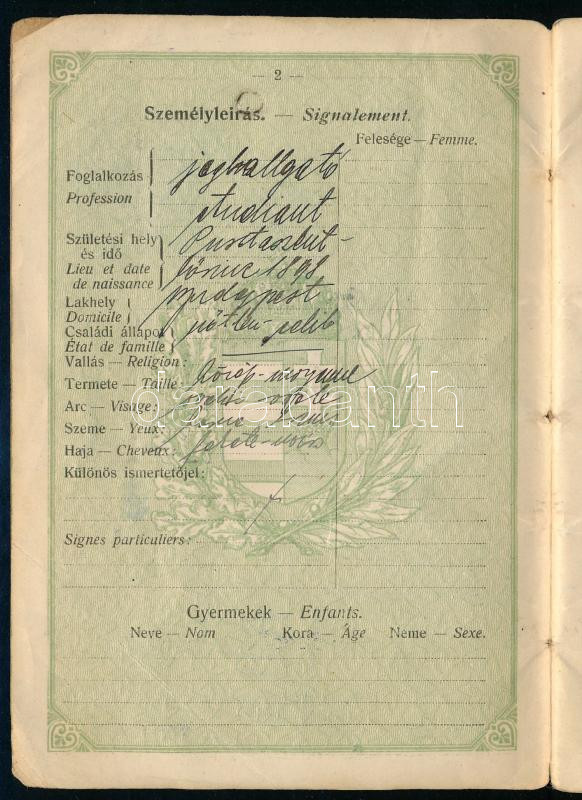 — 2 —
Személyleirás. — Signalement.
Felesége — Femme.
Foglalkozás
Profession
joghallgató
étudiant
Születési hely
és idő
Lieu et date
de naissance
Pusztaszent-
lőrinc 1898
Lakhely
Domicile
Budapest
Családi állapot
État de famille
nőtlen-celib
Vallás — Religion:
Termete — Taille: közép-moyenne
Arc — Visage: ovale
Szeme — Yeux: barna
Haja — Cheveux: fekete-noirs
Különös ismertetőjel:
Signes particuliers:
darabanth
Gyermekek — Enfants.
Neve — Nom Kora — Âge Neme — Sexe.